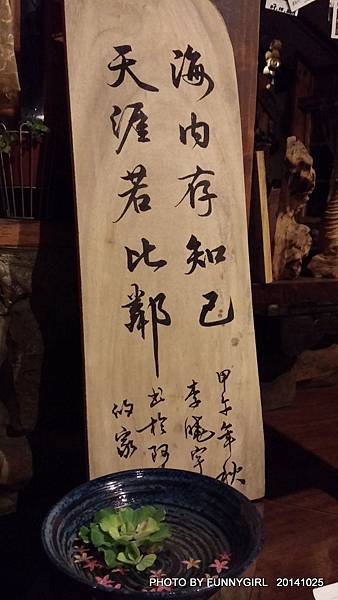 海內存知己
天涯若比鄰
甲午年秋
李曉宇
書於阿
的家
PHOTO BY FUNNYGIRL 20141025